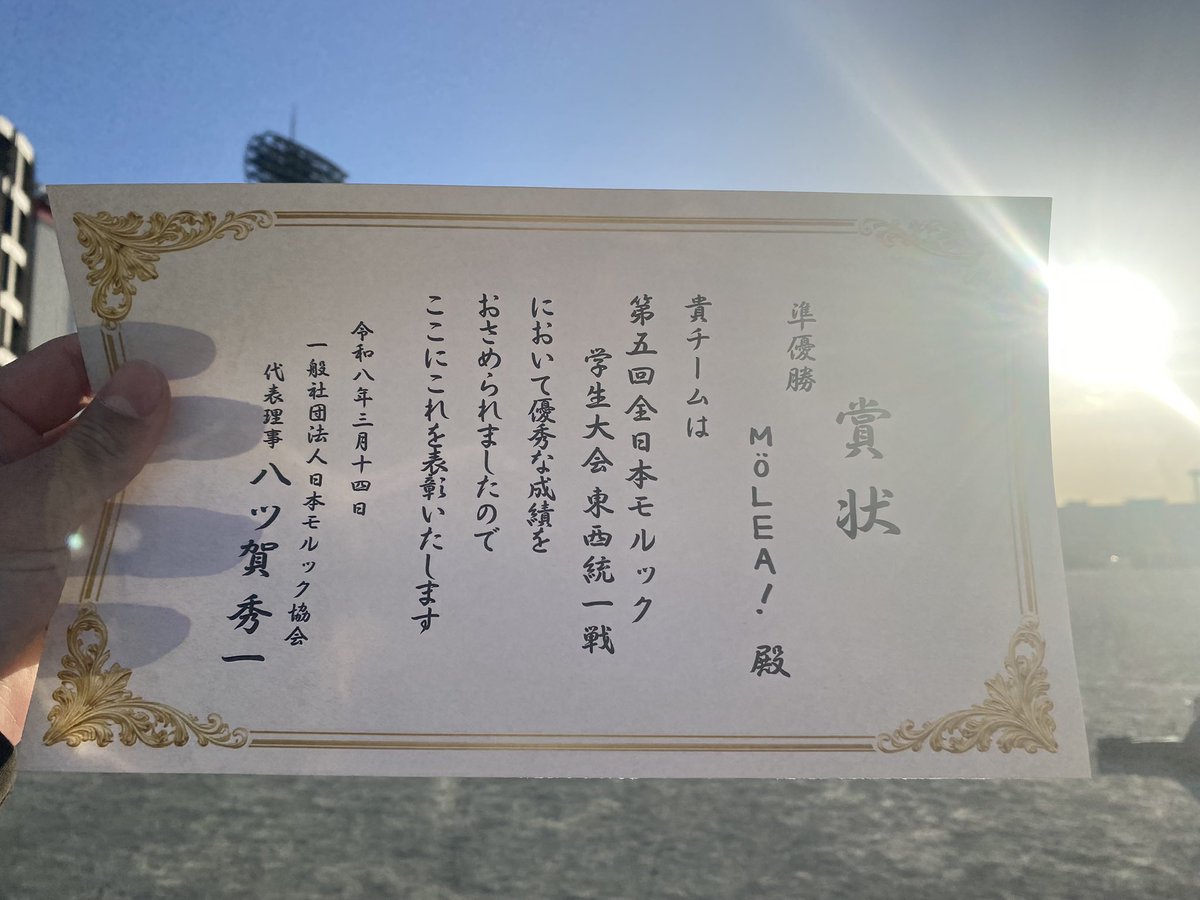 賞状
準優勝
MöLEA! 殿
貴チームは
第五回全日本モルック
学生大会 東西統一戦
において優秀な成績を
おさめられましたので
ここにこれを表彰いたします
令和八年三月十四日
一般社団法人日本モルック協会
代表理事 八ツ賀 秀一